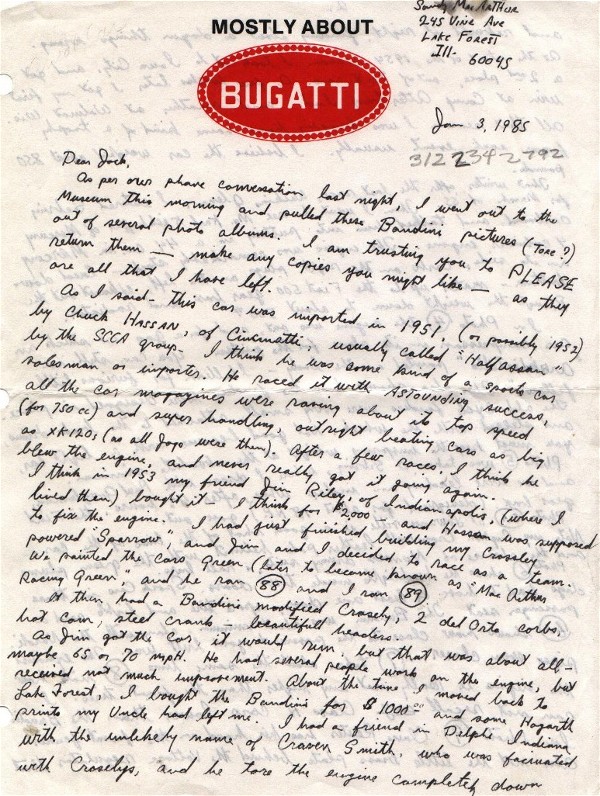 Sandy MacArthur
245 Vine Ave
Lake Forest
Ill- 60045
MOSTLY ABOUT
BUGATTI
Jan 3, 1985
312 234 2792
Dear Jack,
As per our phone conversation last night, I went out to the
Museum this morning and pulled these Bandini pictures (Tore?)
out of several photo albums. I am trusting you to PLEASE
return them — make any copies you might like — as they
are all that I have left.
As I said - this car was imported in 1951, (or possibly 1952)
by Chuck HASSAN, of Cincinatti, usually called "Halfassan"
by the SCCA group. I think he was some kind of a sports car
salesman or imports. He raced it with ASTOUNDING success,
all the car magazines were raving about its top speed
(for 750 cc) and super handling, outright beating cars as big
as XK120s (as all Jags were then). After a few races, I think he
blew the engine, and never really got it going again.
I think in 1953 my friend Jim Riley, of Indianapolis, (where I
lived then) bought it - I think for $2000 - and Hassan was supposed
to fix the engine. I had just finished building my Crosley
powered "Sparrow", and Jim and I decided to race as a team.
We painted the cars Green (later to become known as "Mac Arthur
Racing Green", and he ran 88 and I ran 89
It then had a Bandini modified Crosely, 2 del Orto carbs,
hot cam, steel crank - beautiful headers.
As Jim got the car, it would run, but that was about all -
maybe 65 or 70 mpH. He had several people work on the engine, but
received not much improvement. About the time I moved back to
Lake Forest, I bought the Bandini for $1000 00 and some Hogarth
prints my Uncle had left me. I had a friend in Delphi, Indiana
with the unlikely name of Craven Smith, who was facinated
with Croselys, and he tore the engine completely down